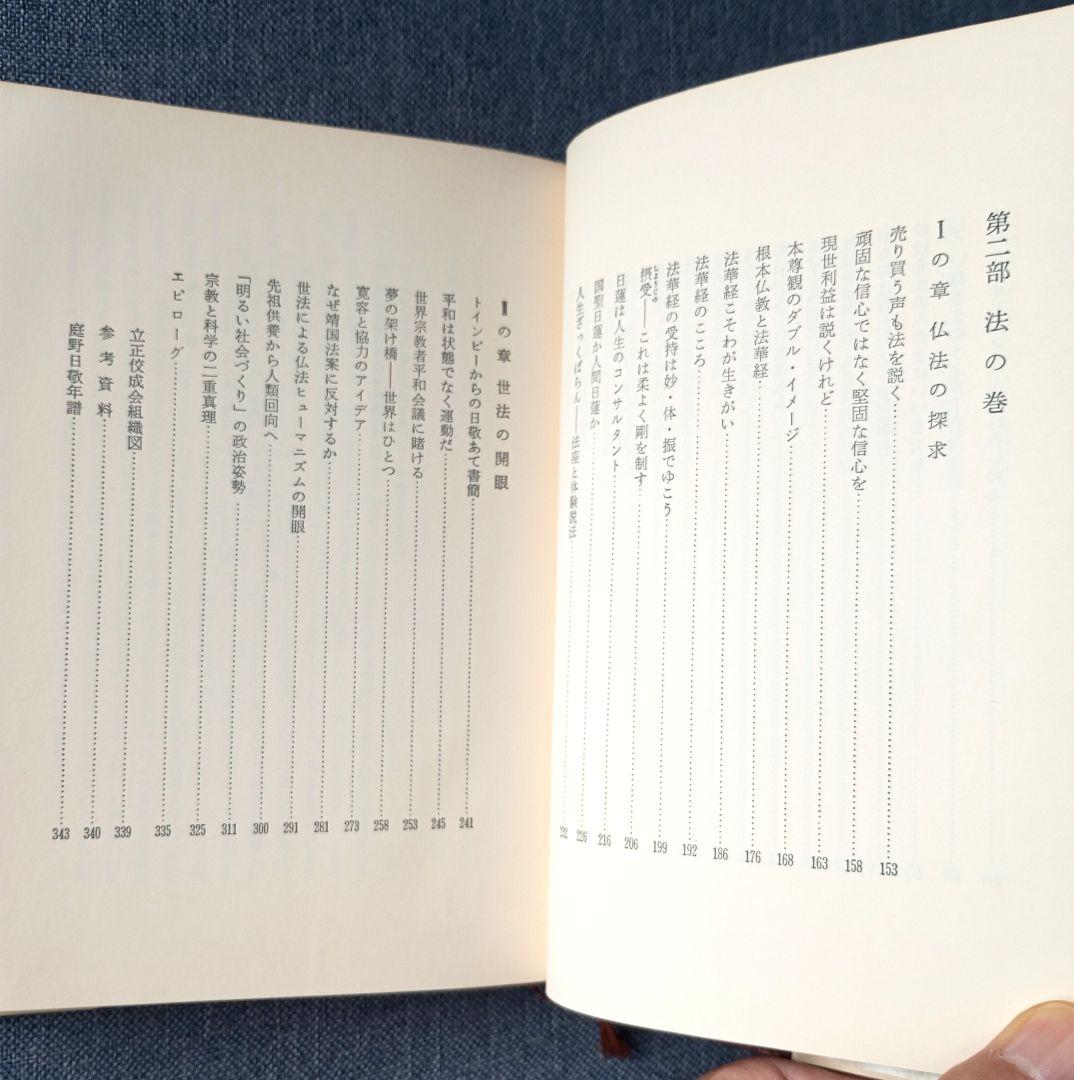 第二部 法の巻
Iの章 仏法の探求
売り買う声も法を説く……153
頑固な信心ではなく堅固な信心を……158
現世利益は説くけれど……163
本尊観のダブル・イメージ……168
根本仏教と法華経……176
法華経こそわが生きがい……186
法華経のこころ……192
法華経の受持は妙・体・振でゆこう……199
摂受——これは柔よく剛を制す……206
日蓮は人生のコンサルタント……216
国聖日蓮か人間日蓮か……226
人生ざっくばらん——法座と体験説法……232
IIの章 世法の開眼
トインビーからの日敬あて書簡……241
平和は状態でなく運動だ……245
世界宗教者平和会議に賭ける……253
夢の架け橋——世界はひとつ……258
寛容と協力のアイデア……273
なぜ靖国法案に反対するか……281
世法による仏法ヒューマニズムの開眼……291
先祖供養から人類回向へ……300
「明るい社会づくり」の政治姿勢……311
宗教と科学の二重真理……325
エピローグ……335
立正佼成会組織図……339
参考資料……340
庭野日敬年譜……343